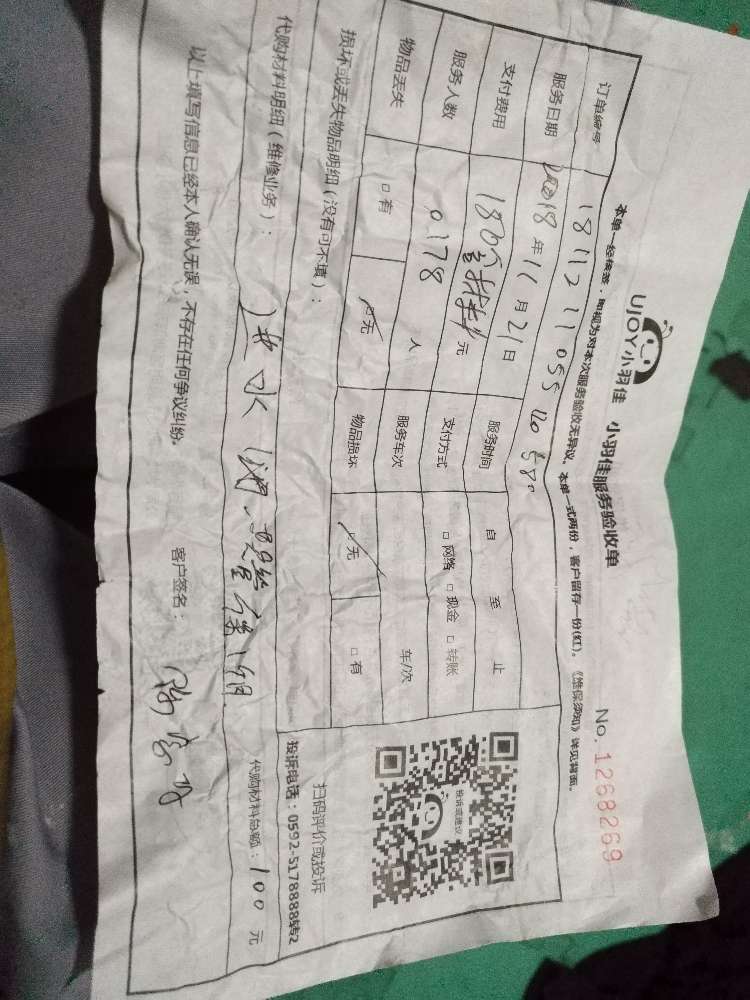 UJOY小羽佳 小羽佳服务验收单 No. 1268269
本单一经核签，即视为对本次服务验收无异议。本单一式两份，客户留存一份(红)。《维保须知》详见背面。
订单编号 181121105540580
服务日期 2018年11月21日 服务时间 自 至 止
支付费用 180含材料元 支付方式 □网络 □现金 □转账
服务人数 0178 人 服务车次 车/次
物品丢失 □有 □无 物品损坏 □无 □有
损坏或丢失物品明细（没有可不填）：
代购材料明细（维修业务）：
进水阀
代购材料总额：100元
以上填写信息已经本人确认无误，不存在任何争议纠纷 客户签名：
投诉或建议
扫码评价或投诉
投诉电话：0592-5178888转2